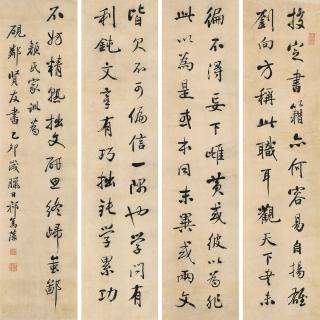 校定書籍亦何容易自揚雄
劉向方稱此職耳觀天下書未
徧不得妄下雌黃或彼以為非
此以為是或本同末異或兩文
皆欠不可偏信一隅也學問有
利鈍文章有巧拙鈍學累功
不妨精熟拙文研思終歸蚩鄙
顏氏家訓為
硯鄰賢友書乙卯歲臘日祁寯藻